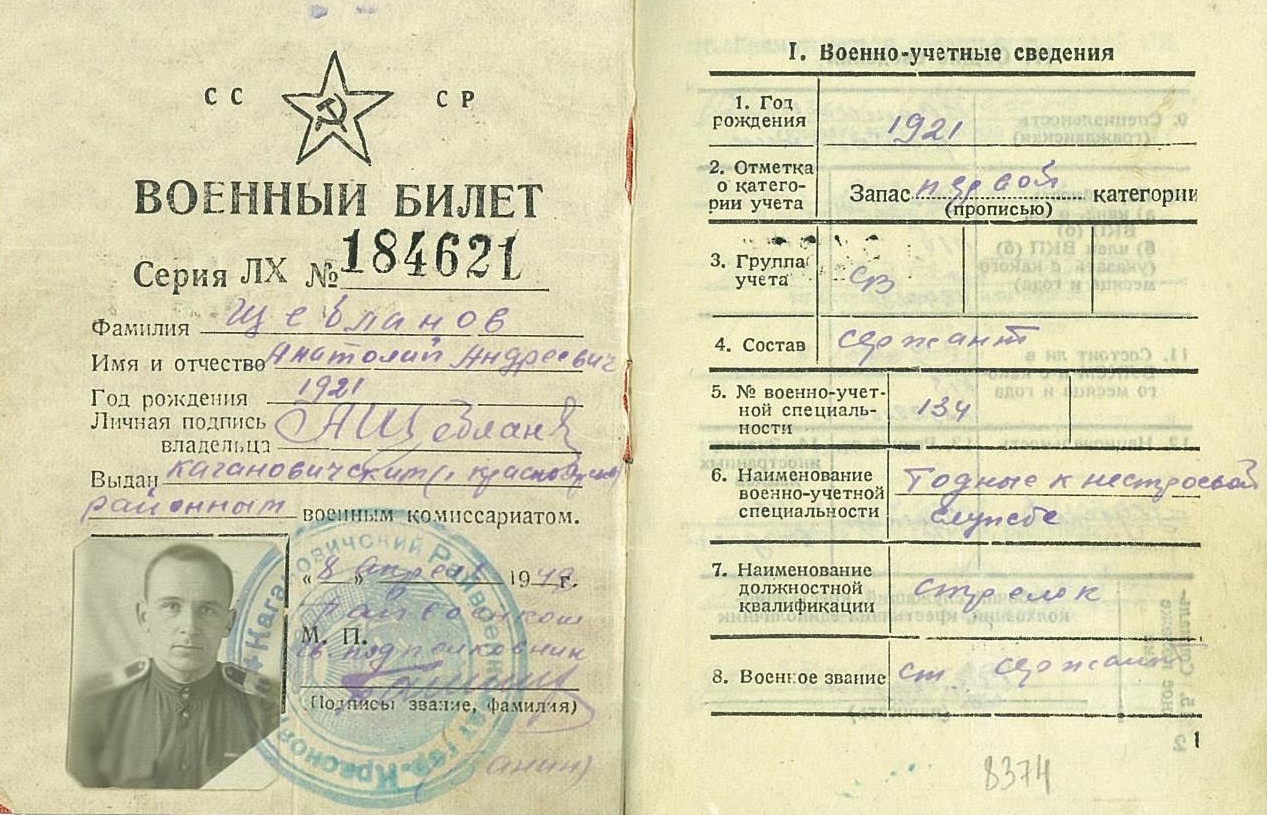 СС СР
ВОЕННЫЙ БИЛЕТ
Серия ЛХ № 184621
Фамилия Щебланов
Имя и отчество Анатолий Андреевич
Год рождения 1921
Личная подпись
владельца АЩебланов
Выдан Кагановичским г. Красноярска
районным военным комиссариатом.
"8" апреля 1949 г.
Райвоенком
М. П.
гв. подполковник
(Подписы звание, фамилия)
I. Военно-учетные сведения
1. Год
рождения
1921
2. Отметка
о катего-
рии учета
Запас первой категории
(прописью)
3. Группа
учета
СВ
4. Состав
сержант
5. № военно-учет-
ной специаль-
ности
134
6. Наименование
военно-учетной
специальности
Годные к нестроевой
службе
7. Наименование
должностной
квалификации
стрелок
8. Военное звание
ст. сержант
1
8374